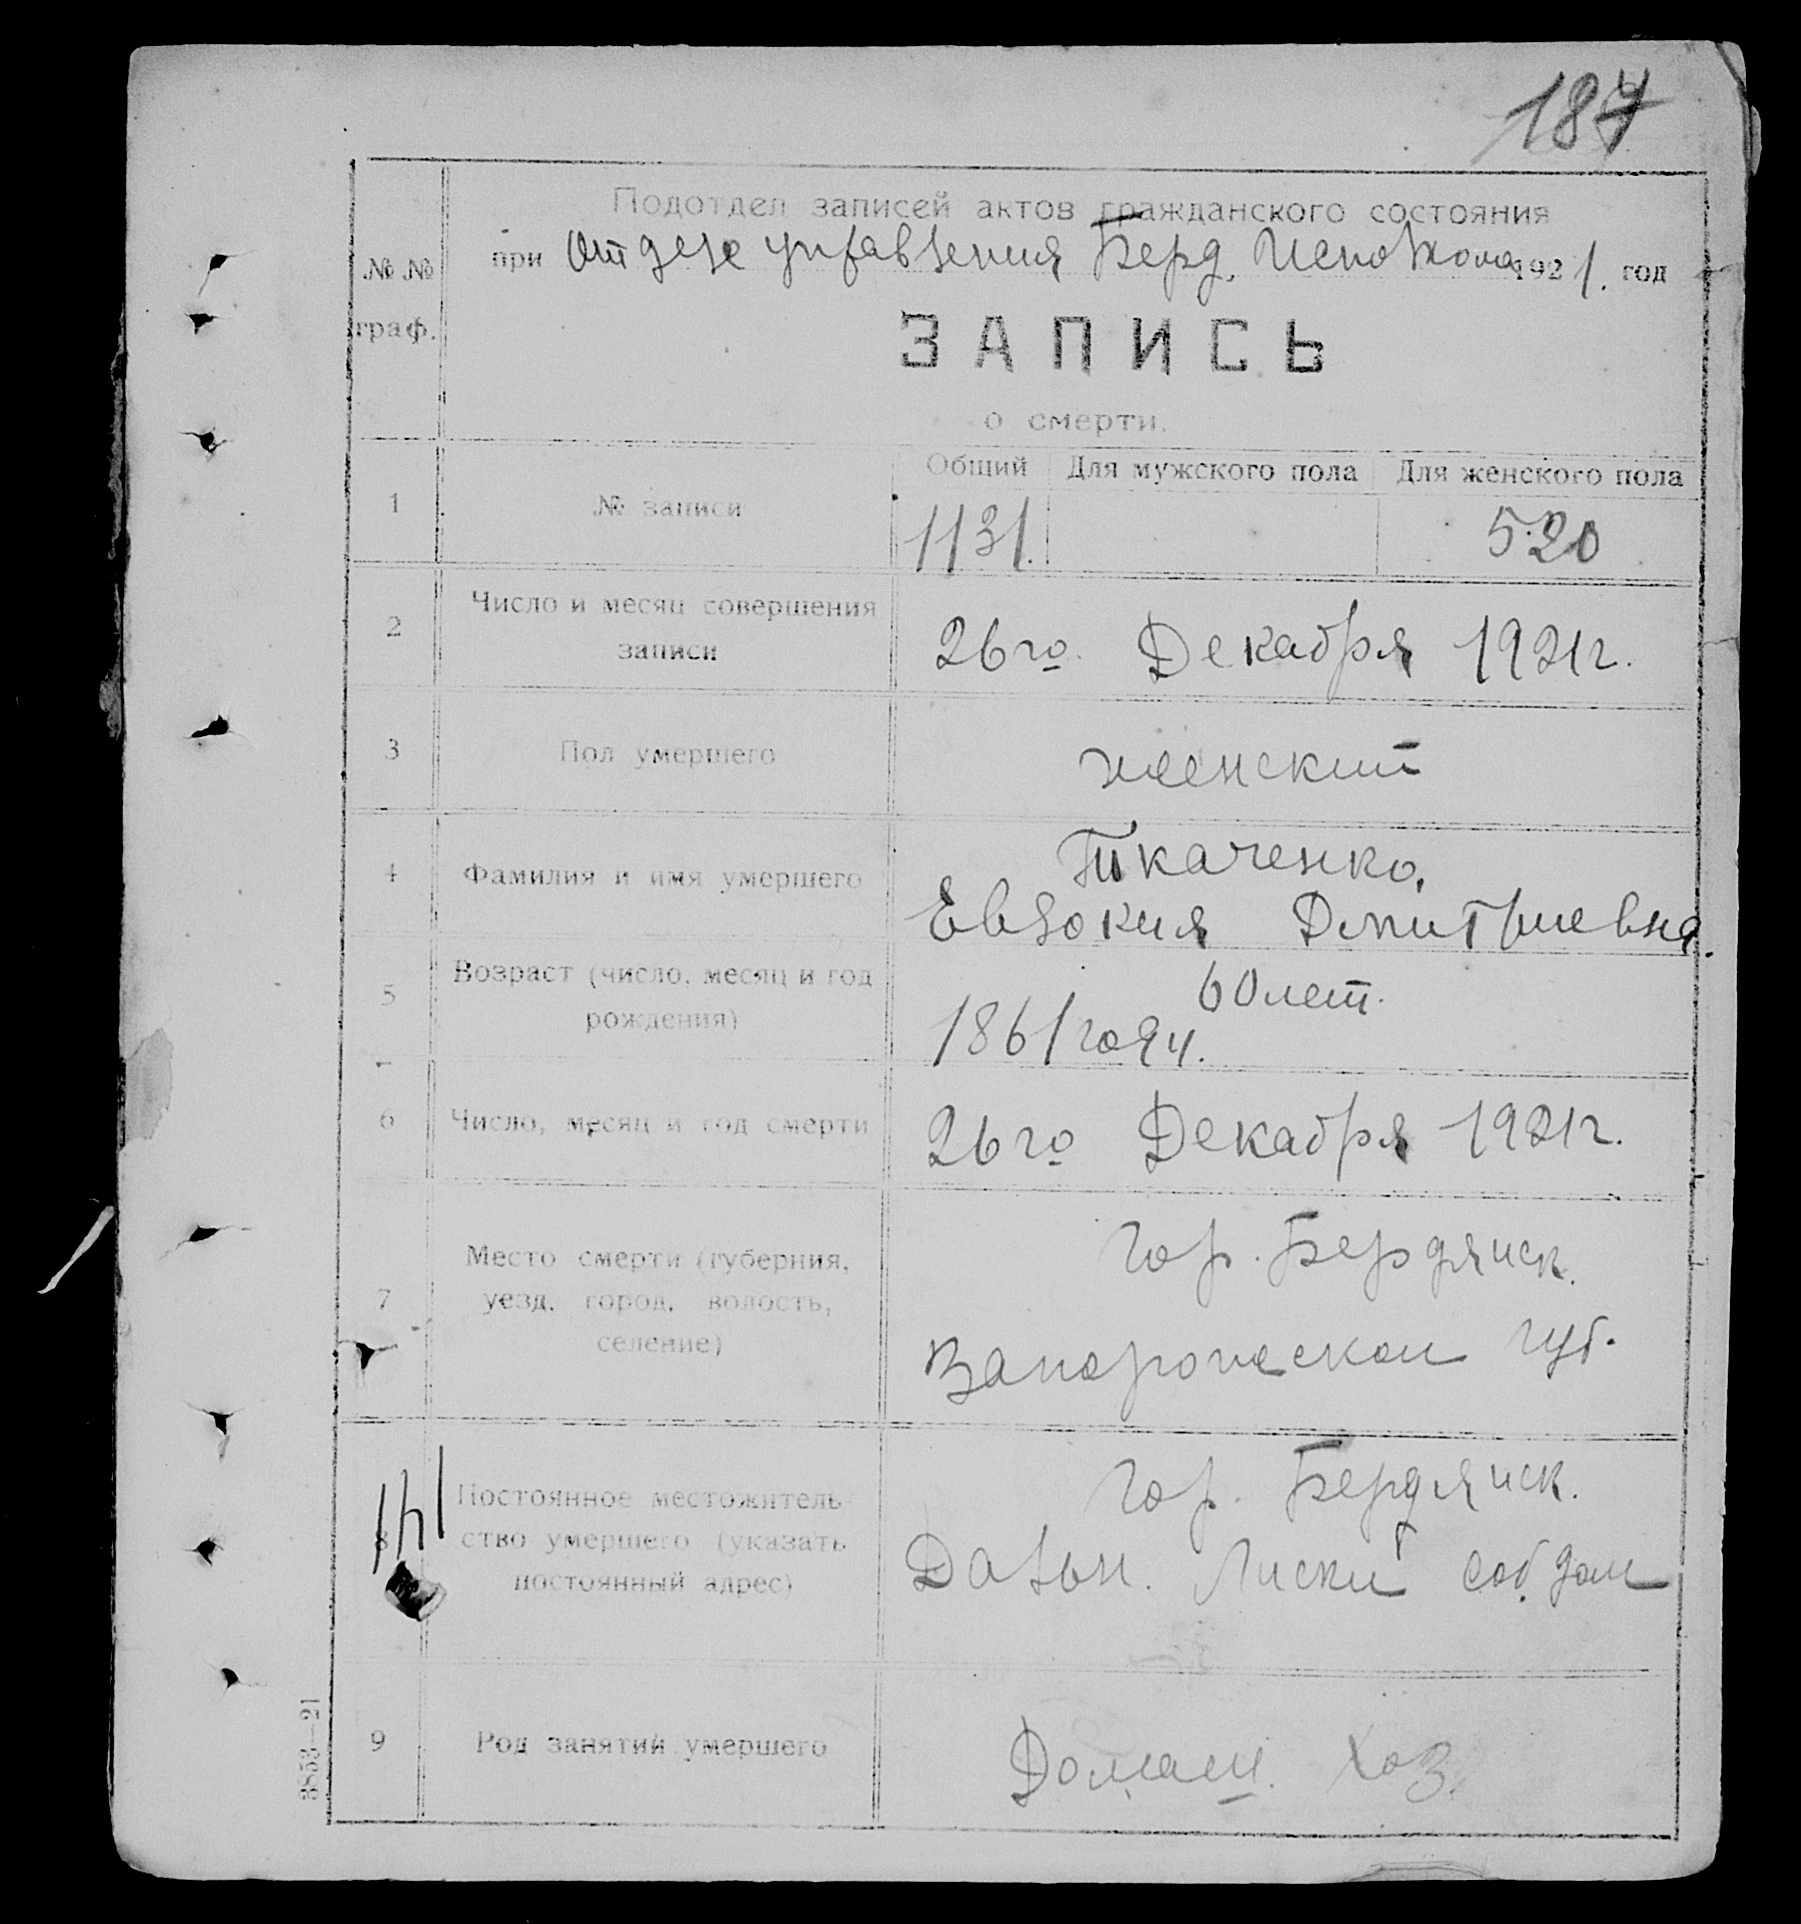 187
Подотдел записей актов гражданского состояния
при Отделе управления Берд. Исполкома 1921. год
№ №
граф.
ЗАПИСЬ
о смерти.
Общий Для мужского пола Для женского пола
1 № записи 1131. 520
2 Число и месяц совершения
записи
26го Декабря 1921г.
3 Пол умершего женский
4 Фамилия и имя умершего Ткаченко,
Евдокия Дмитриевна.
5 Возраст (число, месяц и год
рождения)
60 лет.
1861 году.
6 Число, месяц и год смерти 26го Декабря 1921г.
7 Место смерти (губерния,
уезд, город, волость,
селение)
Гор. Бердянск.
Запорожской губ.
8 Постоянное местожитель-
ство умершего (указать
постоянный адрес)
141
Гор. Бердянск.
Дальн. Лиски соб. дом
9 Род занятий умершего Домаш. хоз.
3853—21